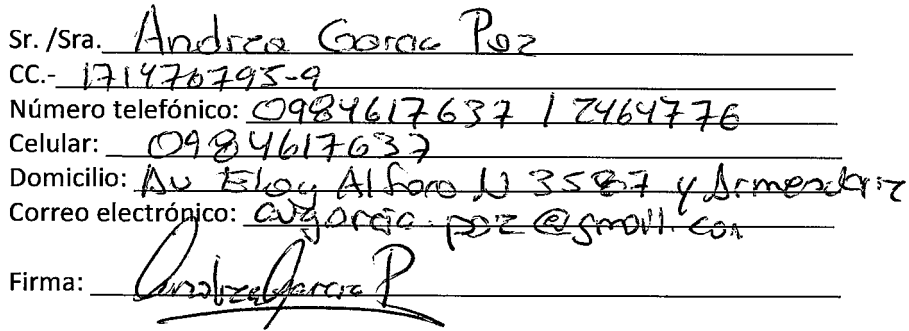 Sr. /Sra. Andrea Garcia Paz
CC.- 171470795-9
Número telefónico: 0984617637 / 2464776
Celular: 0984617637
Domicilio: Av Eloy Alfaro N 3587 y Armendariz
Correo electrónico: avgarcia.paz@gmail.com
Firma: Andrea Garcia P